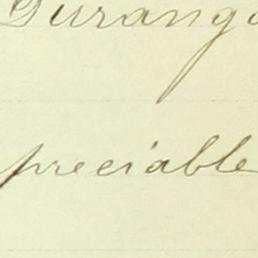 Durango
preciable